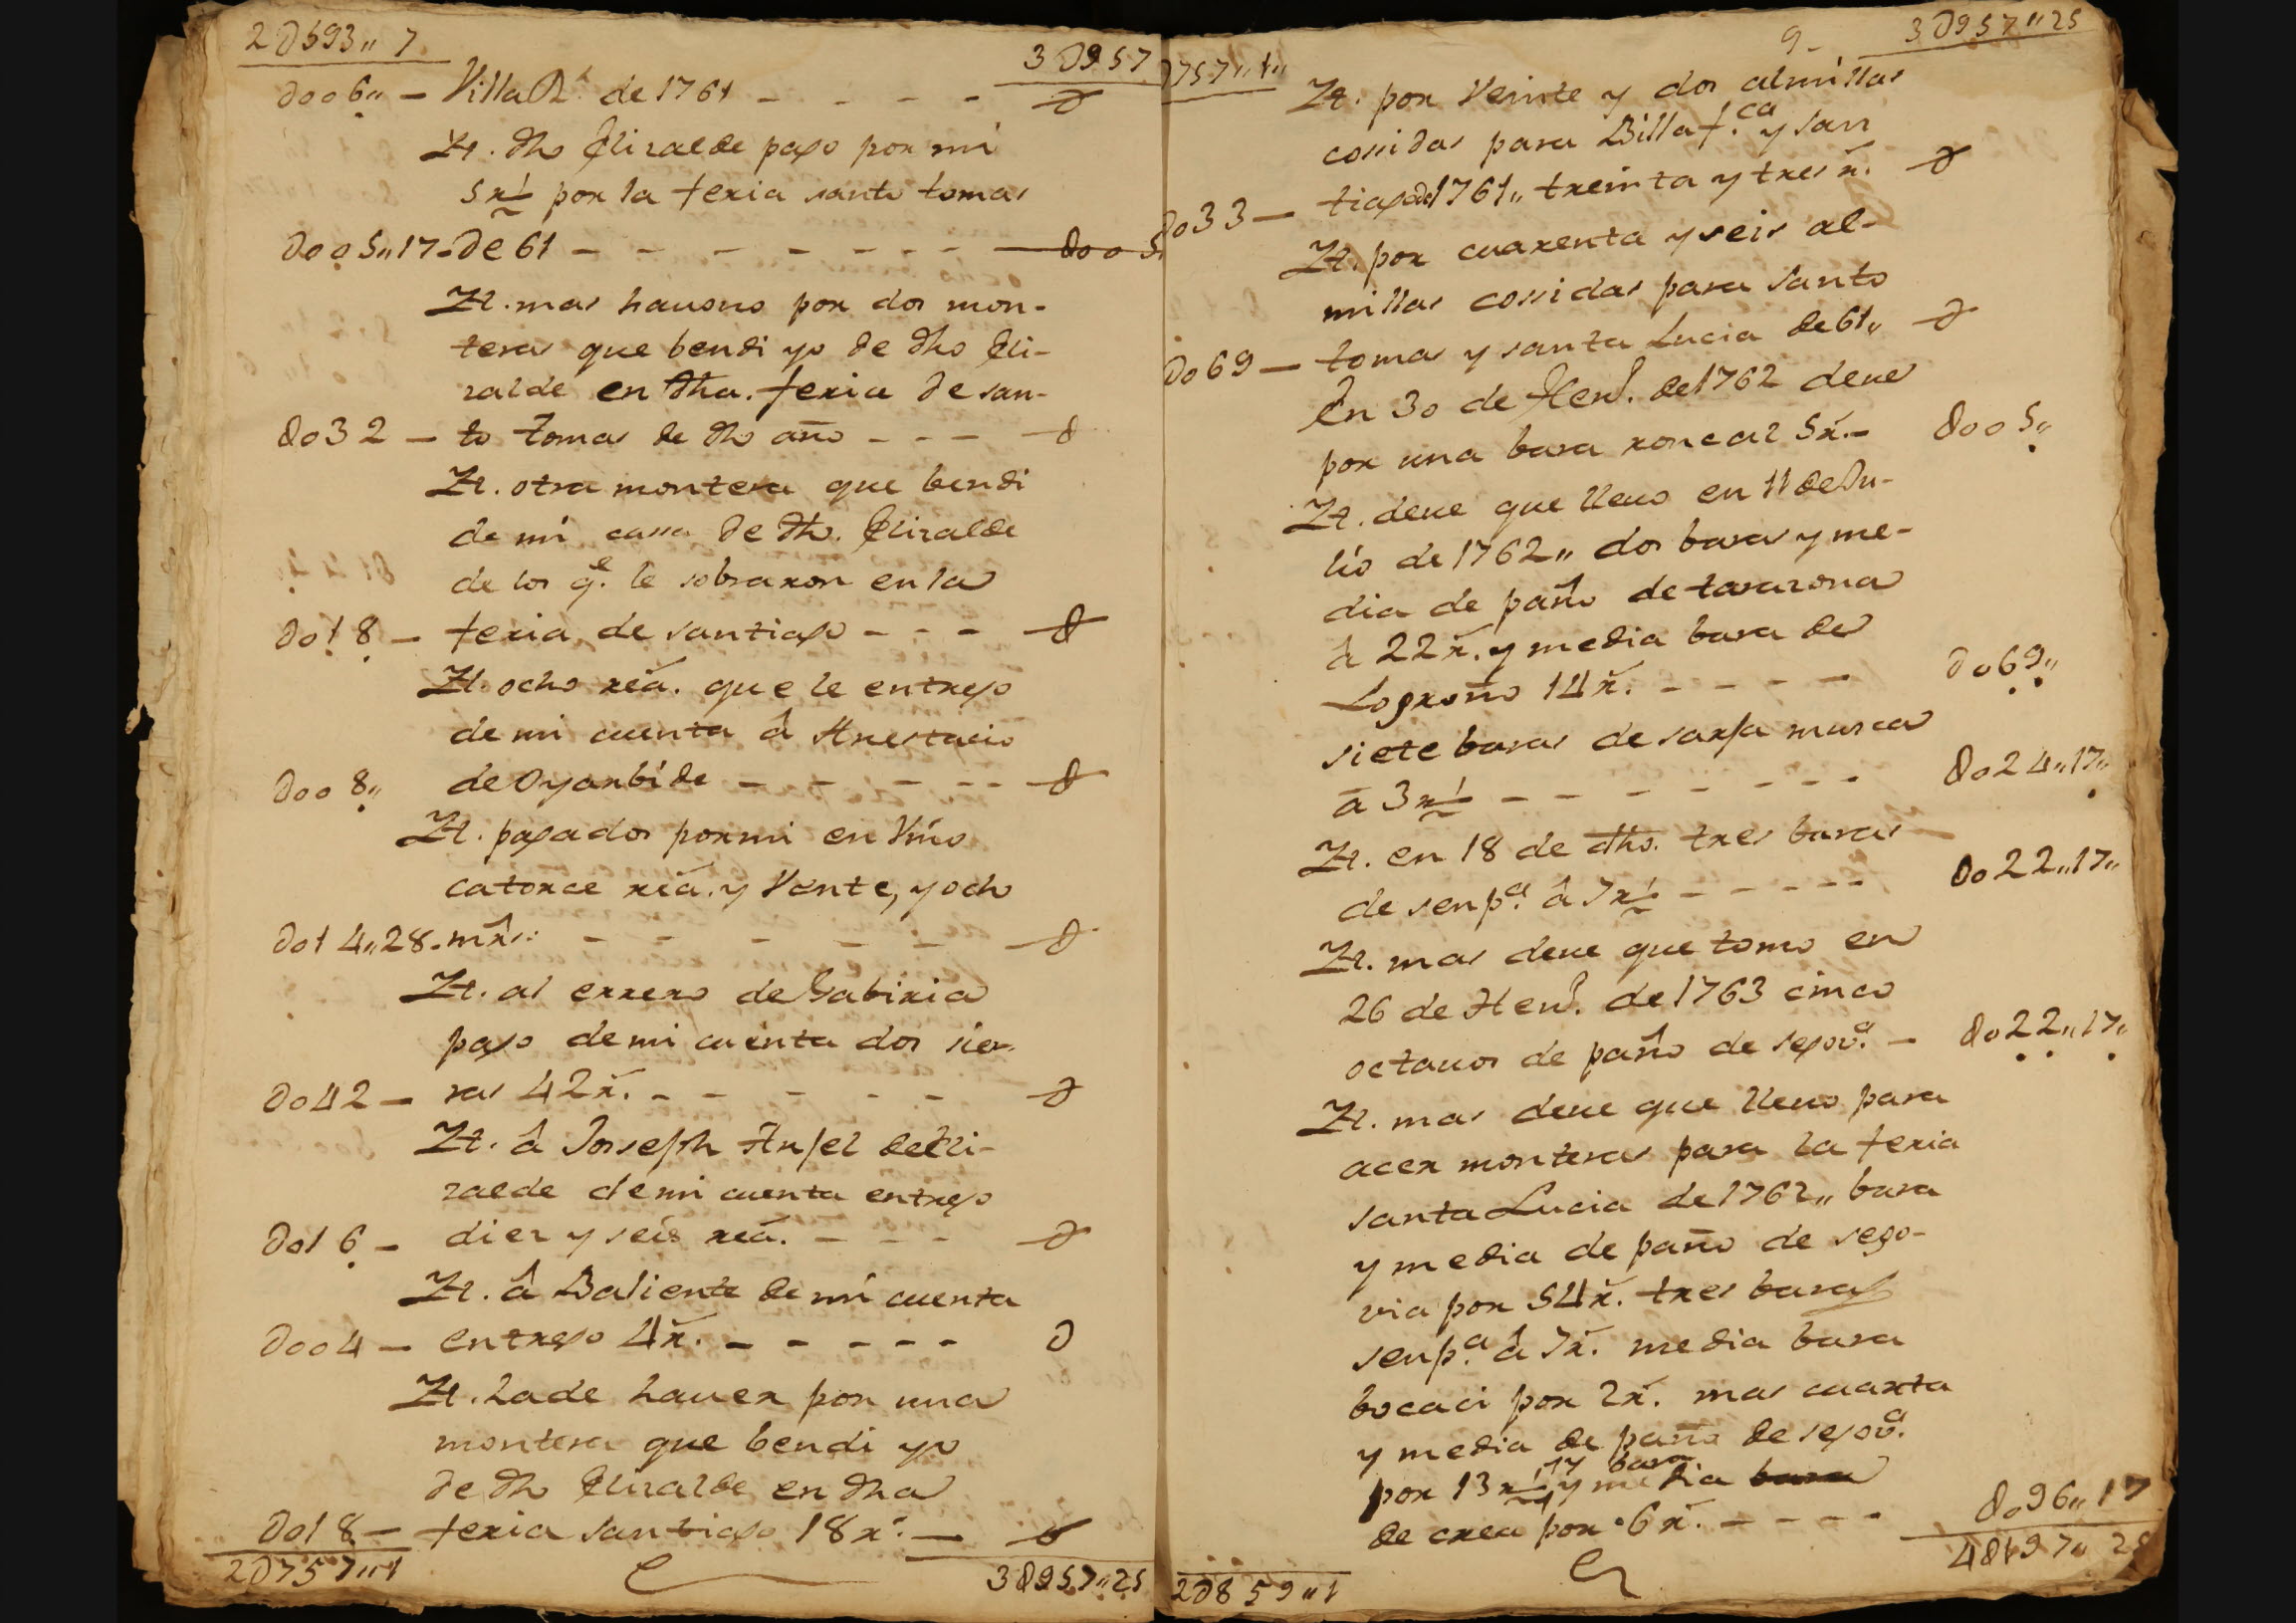 2∂593,, 7 3∂957
∂006,, – Villa R.ˡ de 1761 – – – – ∂
Yt. dho Elizalde pago por mi
5 r½ por la feria santo tomas
∂005,,17 – de 61 – – – – – – – ∂005
Yt. mas hauono por dos mon-
teras que bendi yo de dho Eli-
zalde en dha. feria de san-
∂032 – to tomas de dho año – – – ∂
Yt. otra montera que bendi
de mi cassa de dho. Elizalde
de los q.ᵉ le sobraron en la
∂018 – feria de santiago – – – ∂
Yt. ocho rea. que le entrego
de mi cuenta â Anestacio
∂008,, de Oyarbide – – – – – ∂
Yt. pagados por mi en Vino
catorce rea. y Vente, y ocho
∂014,,28 – mrs: – – – – – ∂
Yt. al errero de Gabiria
pago de mi cuenta dos sier-
∂042 – ras 42 r. – – – – – ∂
Yt. â Joseph Anjel de Eli-
zalde de mi cuenta entrego
∂016 – diez y seis rea. – – – ∂
Yt. â Baliente de mi cuenta
∂004 – entrego 4 r. – – – – – ∂
Yt. ha de hauer por una
montera que bendi yo
de dho Elizalde en dha
∂018 – feria santiago 18 r.ˢ – ∂
2∂757,,1 3∂957,,25
∂757,,1,, 9– 3∂957,,25
Yt. por Veinte y dos almillas
cossidas para Billaf.ᶜᵃ y san
∂033 – tiago de 1761,, treinta y tres r. ∂
Yt. por cuarenta y seis al-
millas cossidas para santo
∂069 – tomas y santa Lucia de 61,, ∂
En 30 de Hen.º de 1762 deue
por una bara roncal 5 r. – ∂005,,
Yt. deue que lleuo en 11 de Ju-
lio de 1762,, dos baras y me-
dia de paño de tarazona
â 22 r. y media bara de
Logroño 14 r. – – – – ∂069,,
siete baras de sarja murca
a 3 r½ – – – – – – – – ∂024,,17,,
Yt. en 18 de dho. tres baras
de senp.ᵃ â 7 r½ – – – – – ∂022,,17,,
Yt. mas deue que tomo en
26 de Hen.º de 1763 cinco
octauos de paño de segov.ᵃ – ∂022,,17,,
Yt. mas deue que lleuo para
acer monteras para la feria
santa Lucia de 1762,, bara
y media de paño de sego-
via por 54 r. tres baras
senp.ᵃ â 7 r. media bara
bocaci por 2 r. mas cuarta
y media de paño de segov.ᵃ
por 13 r½ y media bara
de crea por 6 r. – – – – ∂096,,17
2∂859,,1 4∂197,,25